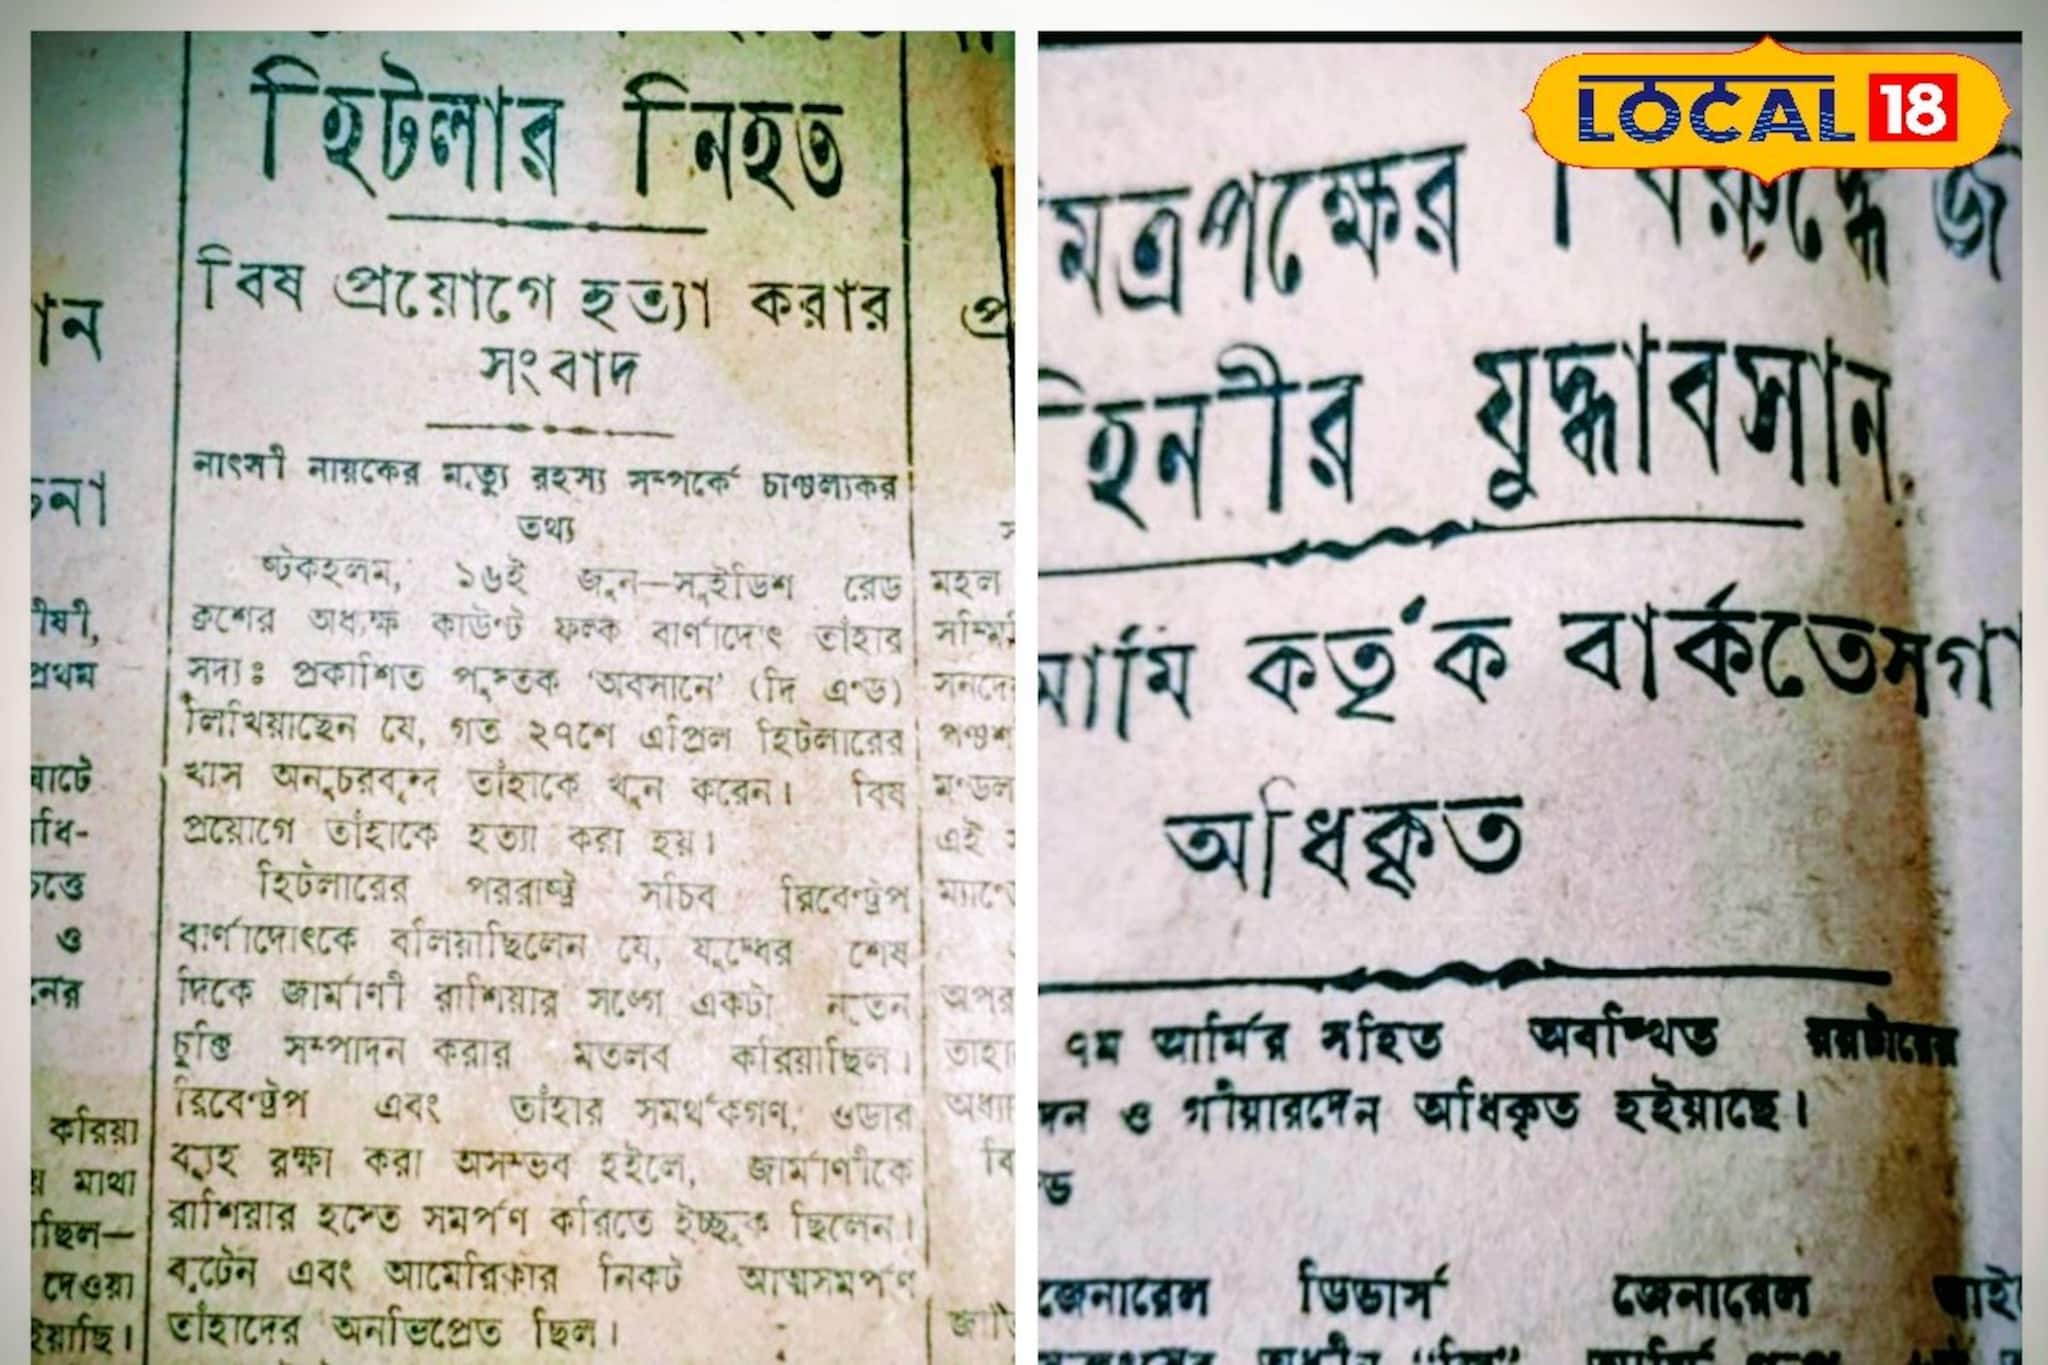 হিটলার নিহত
বিষ প্রয়োগে হত্যা করার
সংবাদ
নাৎসী নায়কের মৃত্যু রহস্য সম্পর্কে চাঞ্চল্যকর
তথ্য
ষ্টকহলম, ১৬ই জুন—সুইডিশ রেড
ক্রশের অধ্যক্ষ কাউণ্ট ফল্ক বার্ণাদোৎ তাঁহার
সদ্যঃ প্রকাশিত পুস্তক ‘অবসানে’ (দি এণ্ড)
লিখিয়াছেন যে, গত ২৭শে এপ্রিল হিটলারের
খাস অনুচরবৃন্দ তাঁহাকে খুন করেন। বিষ
প্রয়োগে তাঁহাকে হত্যা করা হয়।
হিটলারের পররাষ্ট্র সচিব রিবেণ্ট্রপ
বার্ণাদোৎকে বলিয়াছিলেন যে, যুদ্ধের শেষ
দিকে জার্মাণী রাশিয়ার সঙ্গে একটা নূতন
চুক্তি সম্পাদন করার মতলব করিয়াছিল।
রিবেণ্ট্রপ এবং তাঁহার সমর্থকগণ, ওডার
ব্যূহ রক্ষা করা অসম্ভব হইলে, জার্মাণীকে
রাশিয়ার হস্তে সমর্পণ করিতে ইচ্ছুক ছিলেন।
বৃটেন এবং আমেরিকার নিকট আত্মসমর্পণ
তাঁহাদের অনভিপ্রেত ছিল।
ান
প্রথম
ও
করিয়া
মাথা
ছিল—
দেওয়া
মহল
এই
অপর
LOCAL 18
মিত্রপক্ষের বিরুদ্ধে জ
হিনীর যুদ্ধাবসান
আর্মি কর্তৃক বার্কতেসগা
অধিকৃত
৭ম আর্মির সহিত অবস্থিত রয়টারের
ও গীয়ারদেন অধিকৃত হইয়াছে।
জেনারেল ডিভার্স জেনারেল আই